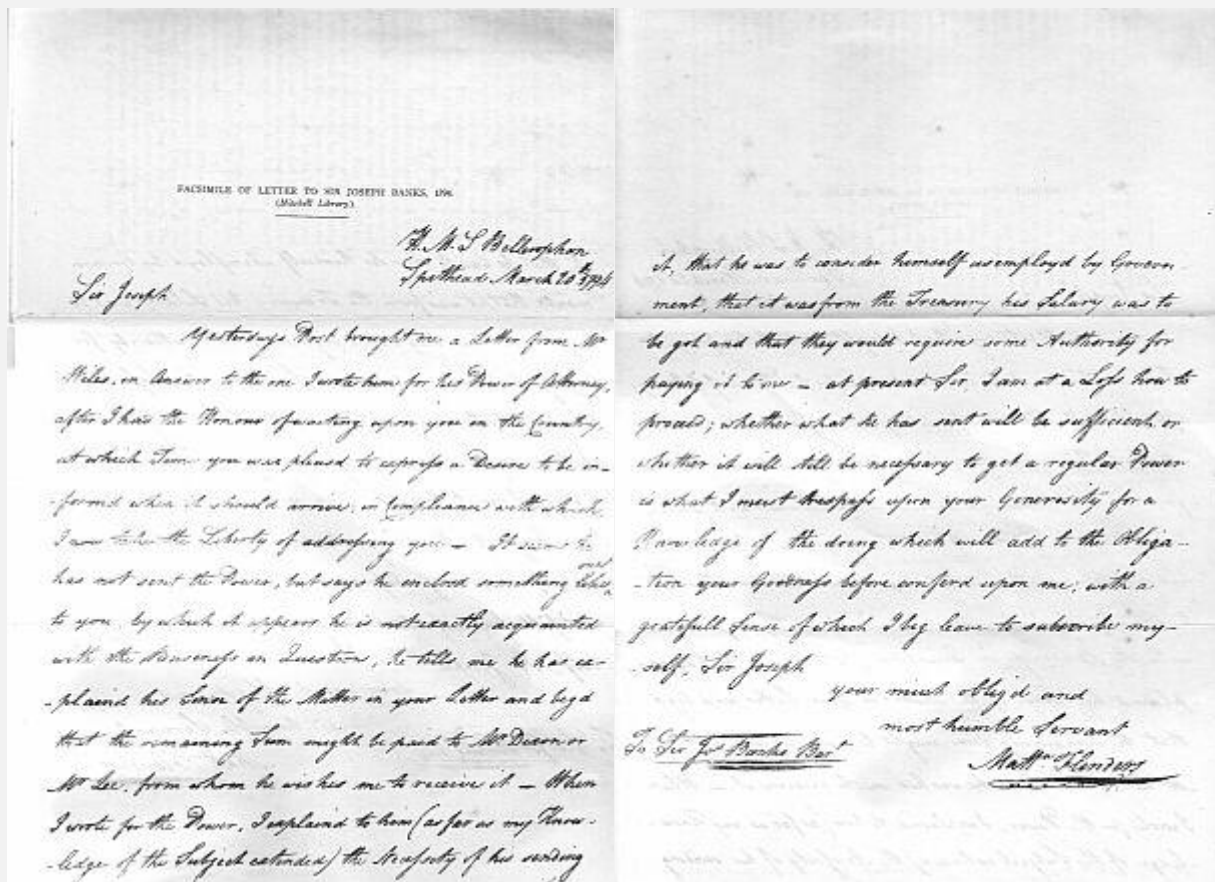 FACSIMILE OF LETTER TO SIR JOSEPH BANKS, 1794.
(Mitchell Library)
H.M.S Bellerophon
Spithead March 20th 1794
Sir Joseph
Yesterdays Post brought me a Letter from Mr
Wiles, in Answer to the one I wrote him for his Power of Attorney,
after I had the Honour of waiting upon you in the Country,
at which Time you was pleasd to express a Desire to be in-
-formd when it should arrive; in Compliance with which
I now take the Liberty of addressing you — It seems he
has not sent the Power, but says he enclosd something
to you, by which it appears he is not exactly acquainted
with the Business in Question, he tells me he has ex-
-plaind his Sense of the Matter in your Letter and begd
that the remaining Sum might be paid to Mr Dixon or
Mr Lee, from whom he wishes me to receive it — When
I wrote for the Power, I explaind to him (as far as my Know-
-ledge of the Subject extended) the Necessity of his sending
it, that he was to consider himself as employd by Govern-
-ment, that it was from the Treasury his Salary was to
be got and that they would require some Authority for
paying it to me — at present Sir, I am at a Loss how to
proceed; whether what he has sent will be sufficient or
whether it will still be necessary to get a regular Power
is what I must trespass upon your Generosity for a
Knowledge of the doing which will add to the Obliga-
-tion your Goodness before conferd upon me; with a
gratefull Sense of which I beg leave to subscribe my-
self, Sir Joseph
your much obligd and
most humble Servant
To Sir Jos Banks Bart
Mattw Flinders